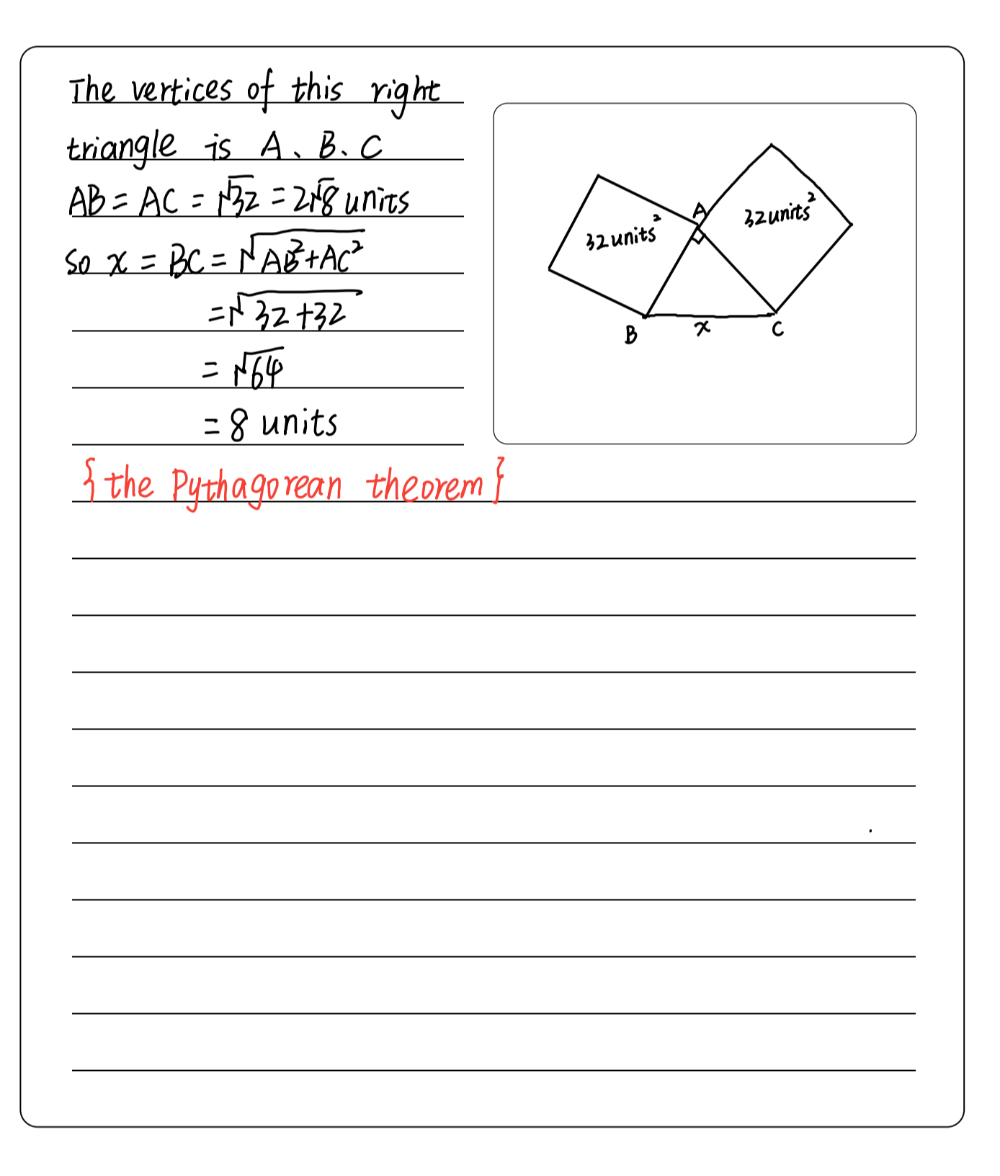 The vertices of this right
triangle is A、B、C
AB = AC = √32 = 2√8 units
So x = BC = √AB²+AC²
=√32+32
= √64
= 8 units
{the Pythagorean theorem}
32units²
A
32units²
B
x
C